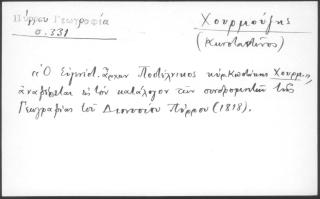 Πύρρου Γεωγραφία
σ. 331
Χουρμούζης
(Κωνσταντῖνος)
"Ὁ Εὐγενέστ. ἄρχων Ποστέλνικος κύρ Κωνστ/νος Χουρμ.,
ἀναφέρεται εἰς τὸν κατάλογον τῶν συνδρομητῶν τῆς
Γεωγραφίας τοῦ Διονυσίου Πύρρου (1818).